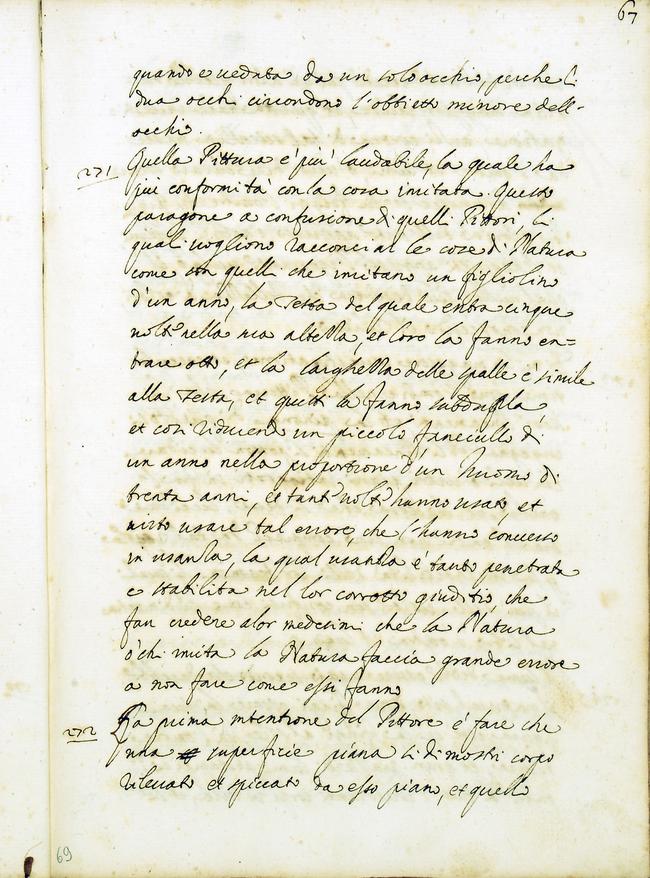 67
quando e ueduta da un solo occhio, perche li
dua occhi circondono l'obbietto minore dell-
occhio.
271 Quella Pittura e' piu' laudabile, la quale ha
piu conformita' con la cosa imitata. Questo
paragone a confusione di quelli Pittori, li
quali uogliono racconciar le cose di Natura
come son quelli che imitano un figliolino
d'un anno, la Testa del quale entra cinque
uolte nella sua altezza, et loro la fanno en=
trare otto, et la larghezza delle spalle e' simile
alla Testa, et questi la fanno subdupla,
et cosi riducendo un piccolo fanciullo di
un anno nella proportione d'un huomo di
trenta anni, et tante uolte hanno usato, et
uisto usare tal errore, che l'hanno conuerso
in usanza, la qual usanza e' tanto penetrata
e stabilita nel lor corrotto giuditio, che
fan credere a lor medesimi che la Natura
o' chi imita la Natura faccia grande errore
a non fare come essi fanno
272 La prima intentione del Pittore e' fare che
una superficie piana si dimostri corpo
rileuato et spiccato da esso piano, et quello
69